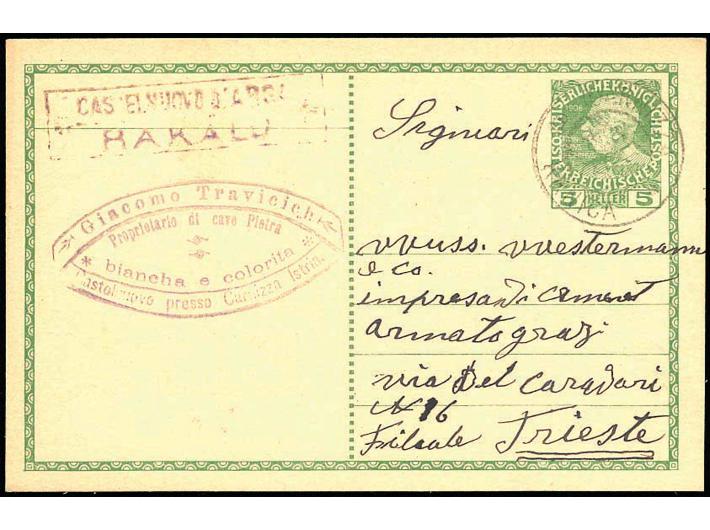 CASTELNUOVO D'ARSA
RAKALU
Giacomo Travicich
Proprietario di cave Pietra
* biancha e colorita *
Castelnuovo presso Carnizza Istria.
KAISERLICHE KÖNIGLICHE
ÖSTERREICHISCHE
5 HELLER 5
Signiari
vvuss. vvestermann
e co.
impresa di cement
armato grazi
via del
N 16
Filiale Trieste